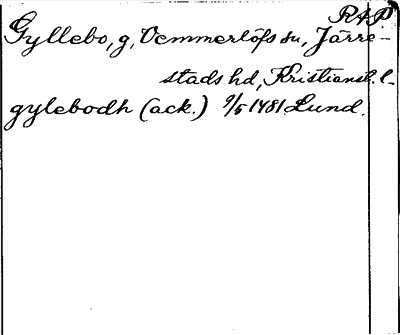 RAP
Gyllebo, g, Ö. Vemmerlöfs sn, Järre-
stads hd, Kristianst. l.
gylebodh (ack.) 9/5 1481 Lund.